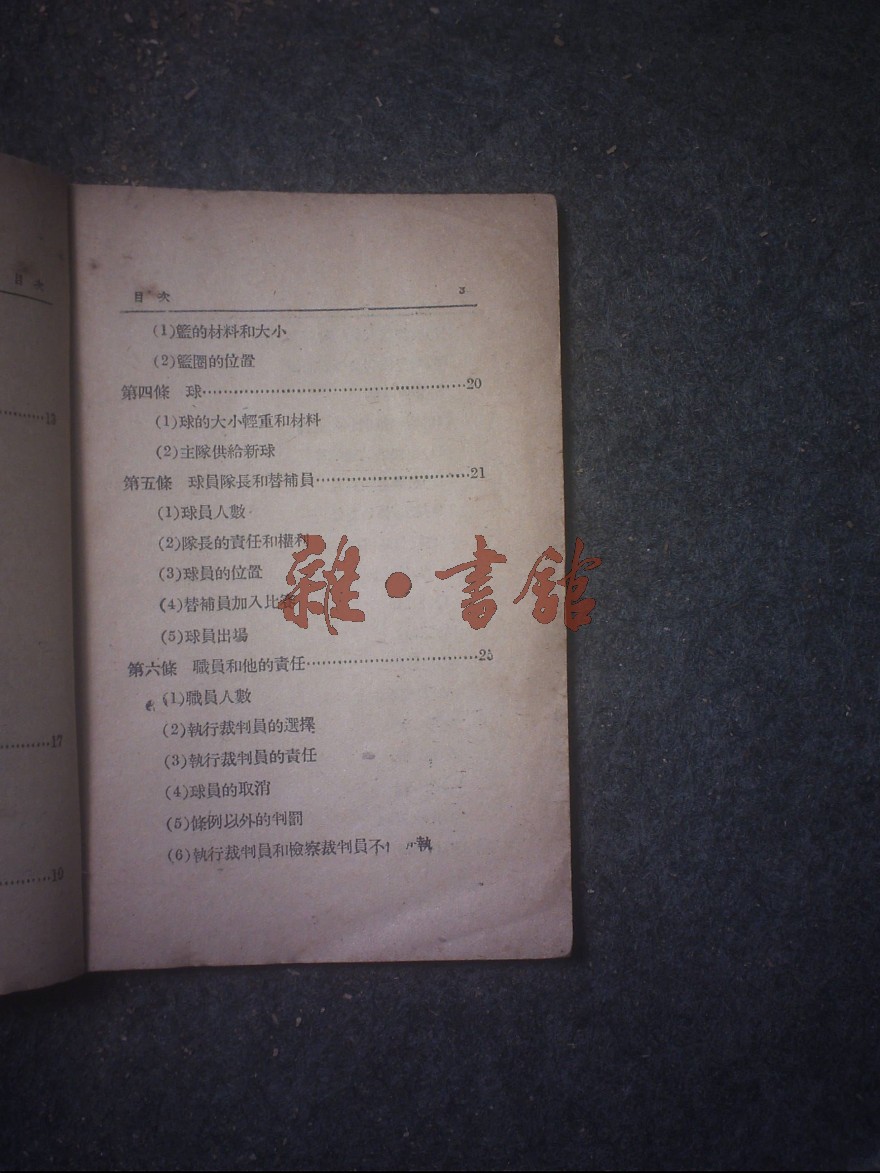 目次
13
17
19
目次 3
(1)籃的材料和大小
(2)籃圈的位置
第四條 球……………………………………20
(1)球的大小輕重和材料
(2)主隊供給新球
第五條 球員隊長和替補員……………………21
(1)球員人數
(2)隊長的責任和權利
(3)球員的位置
(4)替補員加入比賽
(5)球員出場
第六條 職員和他的責任……………………25
(1)職員人數
(2)執行裁判員的選擇
(3)執行裁判員的責任
(4)球員的取消
(5)條例以外的判罰
(6)執行裁判員和檢察裁判員不 執
雜·書館